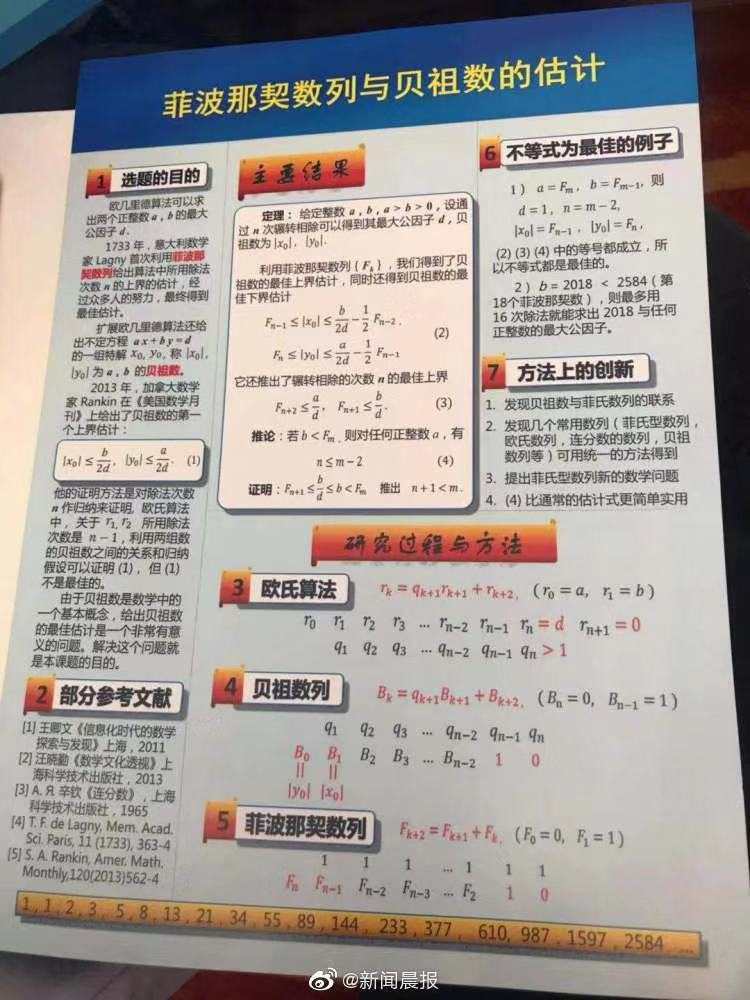 菲波那契数列与贝祖数的估计
1 选题的目的
欧几里德算法可以求
出两个正整数 a , b 的最大
公因子 d .
1733 年，意大利数学
家 Lagny 首次利用菲波那
契数列给出算法中所用除法
次数 n 的上界的估计，经
过众多人的努力，最终得到
最佳估计。
扩展欧几里德算法还给
出不定方程 a x + b y = d
的一组特解 x₀, y₀, 称 |x₀| ,
|y₀| 为 a , b 的贝祖数。
2013 年，加拿大数学
家 Rankin 在《美国数学月
刊》上给出了贝祖数的第一
个上界估计：
|x₀| ≤ b/2d , |y₀| ≤ a/2d . (1)
他的证明方法是对除法次数
n 作归纳来证明, 欧氏算法
中，关于 r₁, r₂ 所用除法
次数是 n − 1，利用两组数
的贝祖数之间的关系和归纳
假设可以证明 (1) , 但 (1)
不是最佳的。
由于贝祖数是数学中的
一个基本概念，给出贝祖数
的最佳估计是一个非常有意
义的问题。解决这个问题就
是本课题的目的。
2 部分参考文献
[1] 王卿文《信息化时代的数学
探索与发现》上海，2011
[2] 汪晓勤《数学文化透视》上
海科学技术出版社，2013
[3] A. Я. 辛钦《连分数》，上海
科学技术出版社，1965
[4] T. F. de Lagny, Mem. Acad.
Sci. Paris, 11 (1733), 363-4
[5] S. A. Rankin, Amer. Math.
Monthly,120(2013)562-4
主要结果
定理： 给定整数 a , b , a > b > 0 , 设通
过 n 次辗转相除可以得到其最大公因子 d , 贝
祖数为 |x₀| , |y₀|.
利用菲波那契数列 { Fₖ } , 我们得到了贝
祖数的最佳上界估计，同时还得到贝祖数的最
佳下界估计
Fₙ₋₁ ≤ |x₀| ≤ b/2d − 1/2 Fₙ₋₂ .
(2)
Fₙ ≤ |y₀| ≤ a/2d − 1/2 Fₙ₋₁
它还推出了辗转相除的次数 n 的最佳上界
Fₙ₊₂ ≤ a/d , Fₙ₊₁ ≤ b/d . (3)
推论：若 b < Fₘ , 则对任何正整数 a , 有
n ≤ m − 2 (4)
证明：Fₙ₊₁ ≤ b/d ≤ b < Fₘ 推出 n + 1 < m .
6 不等式为最佳的例子
1 ) a = Fₘ , b = Fₘ₋₁, 则
d = 1 , n = m − 2 ,
|x₀| = Fₙ₋₁ , |y₀| = Fₙ ,
(2) (3) (4) 中的等号都成立，所
以不等式都是最佳的。
2 ) b = 2018 < 2584 ( 第
18个菲波那契数 ) , 则最多用
16 次除法就能求出 2018 与任何
正整数的最大公因子。
7 方法上的创新
1. 发现贝祖数与菲氏数列的联系
2. 发现几个常用数列 ( 菲氏型数列 ,
欧氏数列，连分数的数列，贝祖
数列等 ) 可用统一的方法得到
3. 提出菲氏型数列新的数学问题
4. (4) 比通常的估计式更简单实用
研究过程与方法
3 欧氏算法 rₖ = qₖ₊₁rₖ₊₁ + rₖ₊₂ , ( r₀ = a, r₁ = b )
r₀ r₁ r₂ r₃ … rₙ₋₂ rₙ₋₁ rₙ = d rₙ₊₁ = 0
q₁ q₂ q₃ … qₙ₋₂ qₙ₋₁ qₙ > 1
4 贝祖数列 Bₖ = qₖ₊₁Bₖ₊₁ + Bₖ₊₂ , ( Bₙ = 0, Bₙ₋₁ = 1 )
q₁ q₂ q₃ … qₙ₋₂ qₙ₋₁ qₙ
B₀ B₁ B₂ B₃ … Bₙ₋₂ 1 0
|| ||
|y₀| |x₀|
5 菲波那契数列 Fₖ₊₂ = Fₖ₊₁ + Fₖ , ( F₀ = 0, F₁ = 1 )
1 1 1 … 1 1 1
Fₙ Fₙ₋₁ Fₙ₋₂ Fₙ₋₃ … F₂ 1 0
1 , 1 , 2 , 3 , 5 , 8 , 13 , 21 , 34 , 55 , 89 , 144 , 233 , 377 , 610, 987 , 1597 , 2584 ……
@新闻晨报